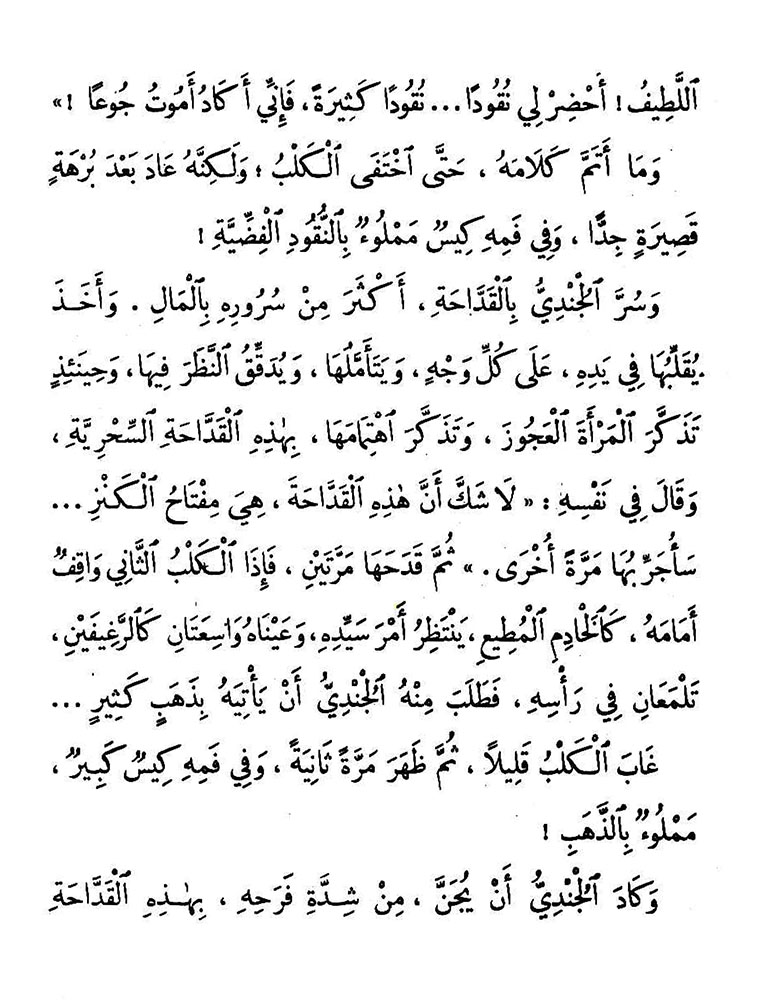 ٱللَّطِيفُ! أَحْضِرْ لِي نُقُودًا... نُقُودًا كَثِيرَةً، فَإِنِّي أَكَادُ أَمُوتُ جُوعًا !»
وَمَا أَتَمَّ كَلَامَهُ ، حَتَّى ٱخْتَفَى ٱلْكَلْبُ ؛ وَلَكِنَّهُ عَادَ بَعْدَ بُرْهَةٍ
قَصِيرَةٍ جِدًّا ، وَفِي فَمِهِ كِيسٌ مَمْلُوءٌ بِٱلنُّقُودِ ٱلْفِضِّيَّةِ !
وَسُرَّ ٱلْجُنْدِيُّ بِٱلْقَدَّاحَةِ ، أَكْثَرَ مِنْ سُرُورِهِ بِٱلْمَالِ . وَأَخَذَ
يُقَلِّبُهَا فِي يَدِهِ ، عَلَى كُلِّ وَجْهٍ ، وَيَتَأَمَّلُهَا ، وَيُدَقِّقُ ٱلنَّظَرَ فِيهَا، وَحِينَئِذٍ
تَذَكَّرَ ٱلْمَرْأَةَ ٱلْعَجُوزَ ، وَتَذَكَّرَ ٱهْتِمَامَهَا ، بِهٰذِهِ ٱلْقَدَّاحَةِ ٱلسِّحْرِيَّةِ ،
وَقَالَ فِي نَفْسِهِ : « لَا شَكَّ أَنَّ هٰذِهِ ٱلْقَدَّاحَةَ ، هِيَ مِفْتَاحُ ٱلْكَنْزِ ...
سَأُجَرِّبُهَا مَرَّةً أُخْرَى . » ثُمَّ قَدَحَهَا مَرَّتَيْنِ ، فَإِذَا ٱلْكَلْبُ ٱلثَّانِي وَاقِفٌ
أَمَامَهُ ، كَٱلْخَادِمِ ٱلْمُطِيعِ ، يَنْتَظِرُ أَمْرَ سَيِّدِهِ، وَعَيْنَاهُ وَاسِعَتَانِ كَٱلرَّغِيفَيْنِ ،
تَلْمَعَانِ فِي رَأْسِهِ ، فَطَلَبَ مِنْهُ ٱلْجُنْدِيُّ أَنْ يَأْتِيَهُ بِذَهَبٍ كَثِيرٍ ...
غَابَ ٱلْكَلْبُ قَلِيلًا ، ثُمَّ ظَهَرَ مَرَّةً ثَانِيَةً ، وَفِي فَمِهِ كِيسٌ كَبِيرٌ ،
مَمْلُوءٌ بِٱلذَّهَبِ !
وَكَادَ ٱلْجُنْدِيُّ أَنْ يُجَنَّ ، مِنْ شِدَّةِ فَرَحِهِ ، بِهٰذِهِ ٱلْقَدَّاحَةِ